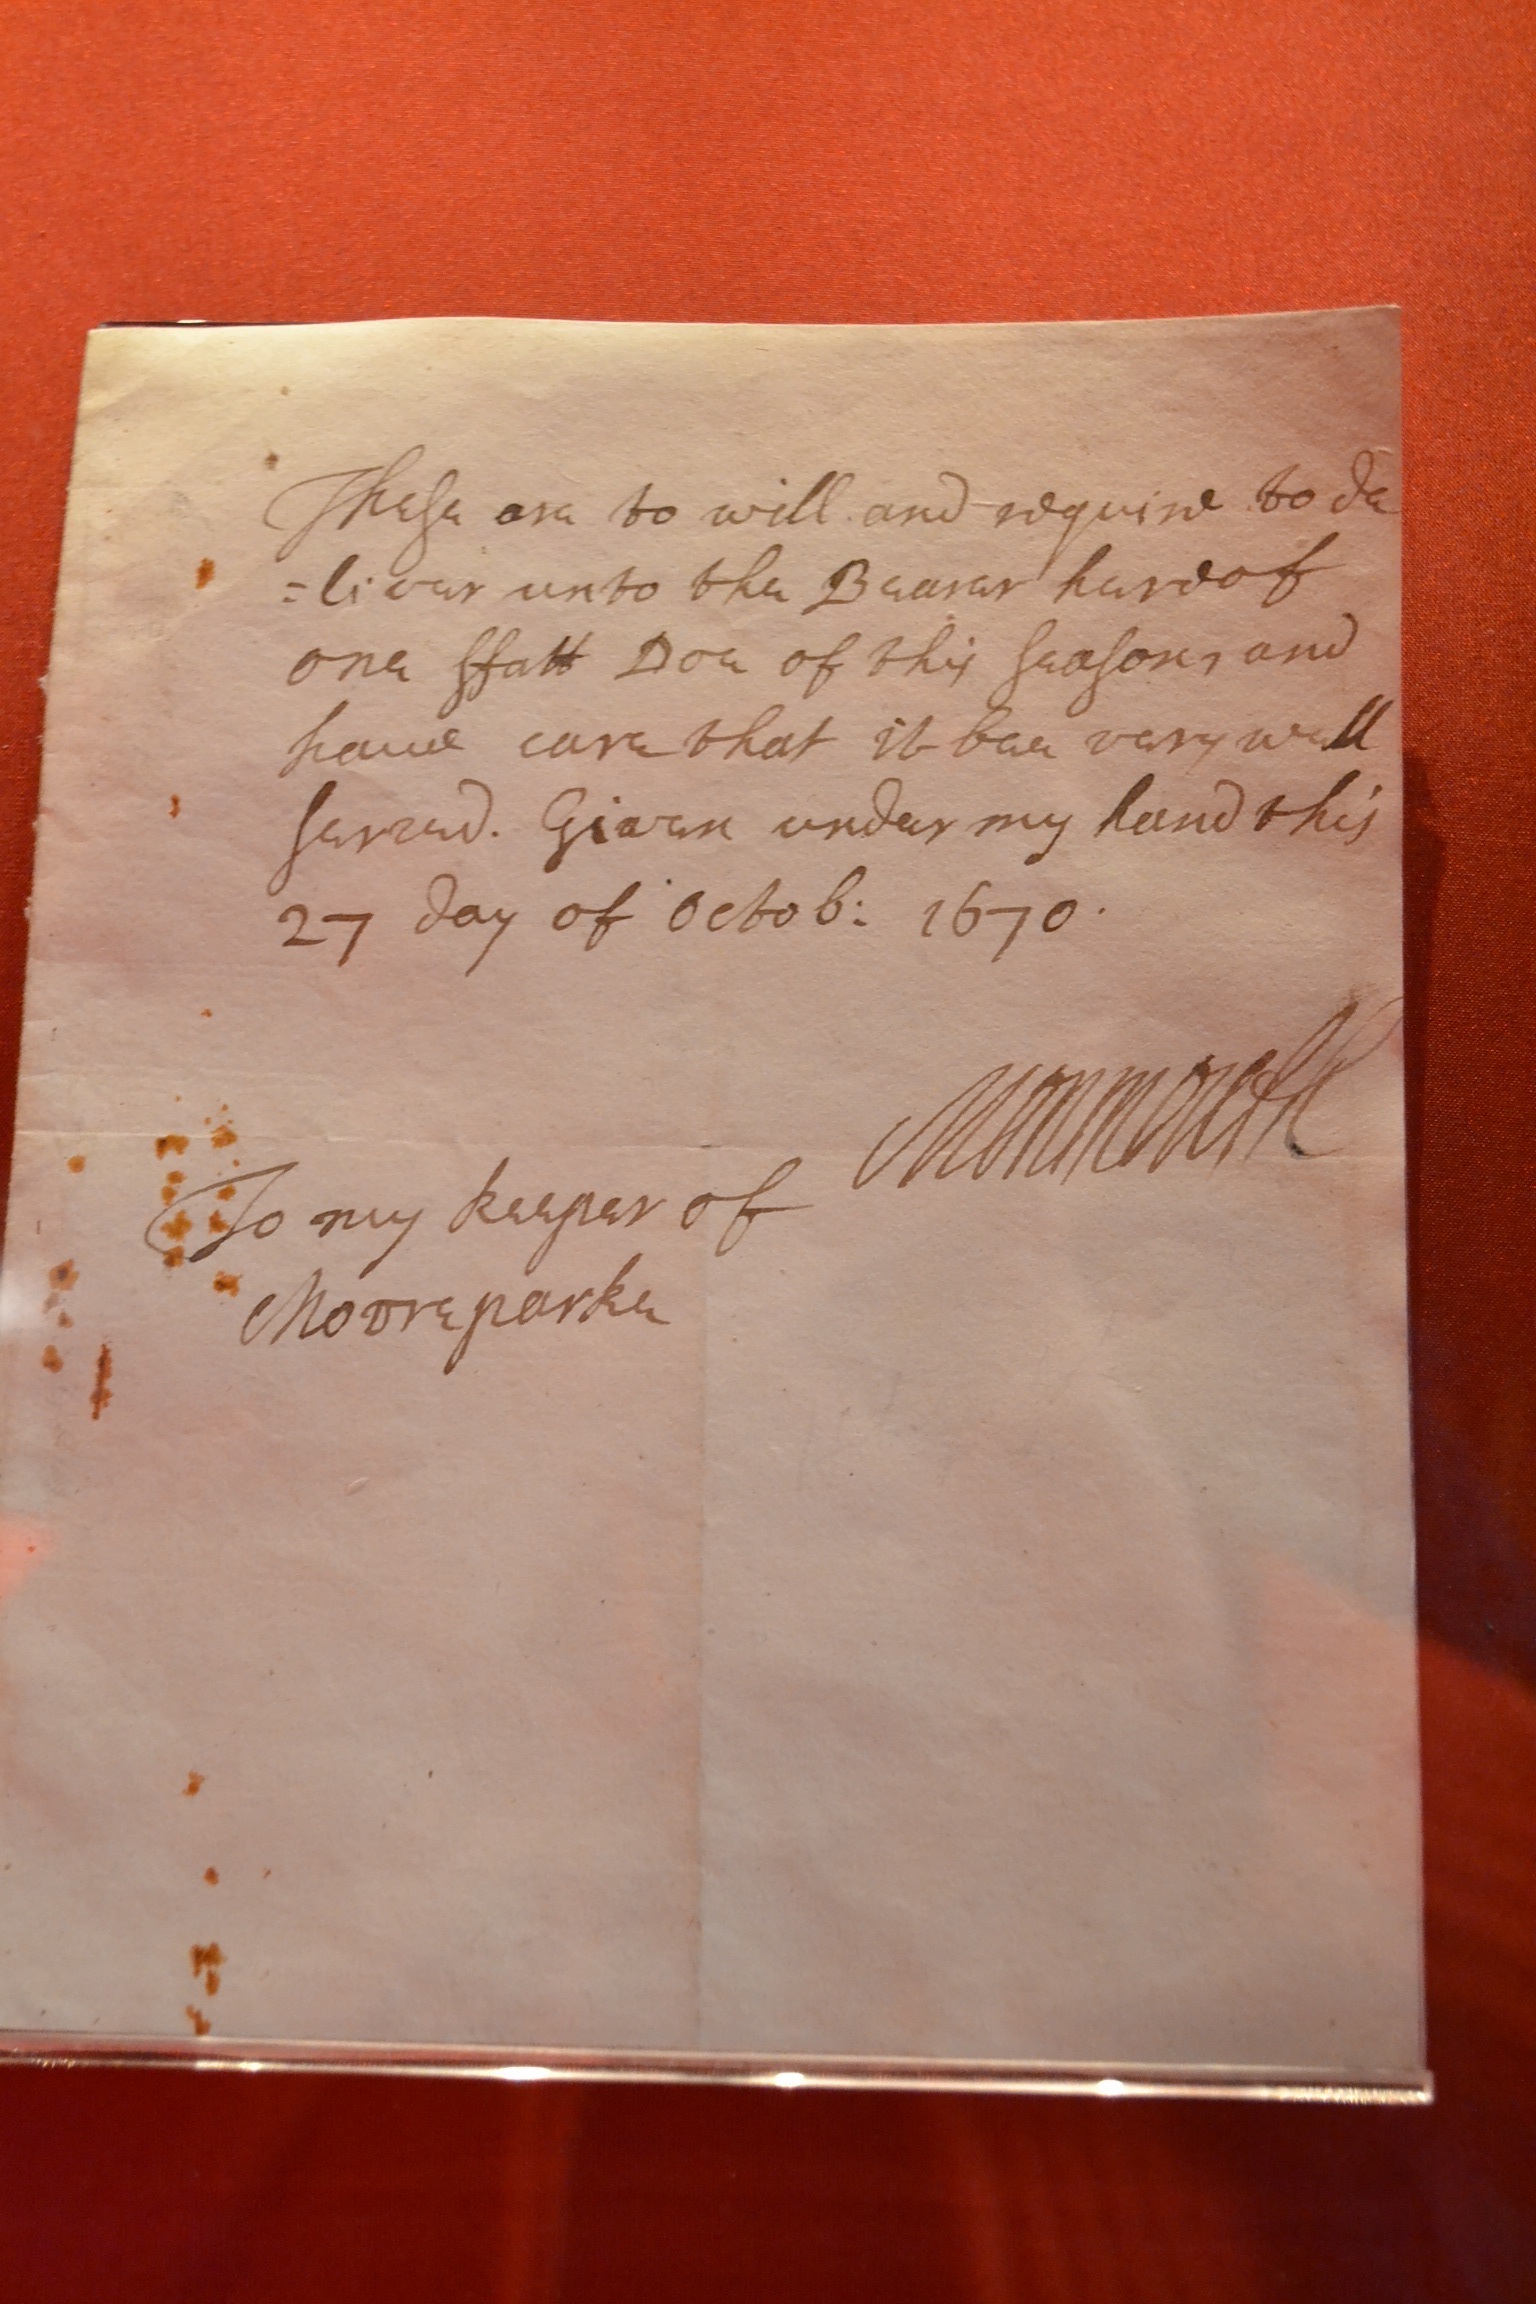 These are to will and require to de
=liver unto the Bearer hereof
one ffatt Doe of this season, and
haue care that it bee very well
served. Given under my hand this
27 day of Octob: 1670.
Monmouth
To my keeper of
Mooreparke